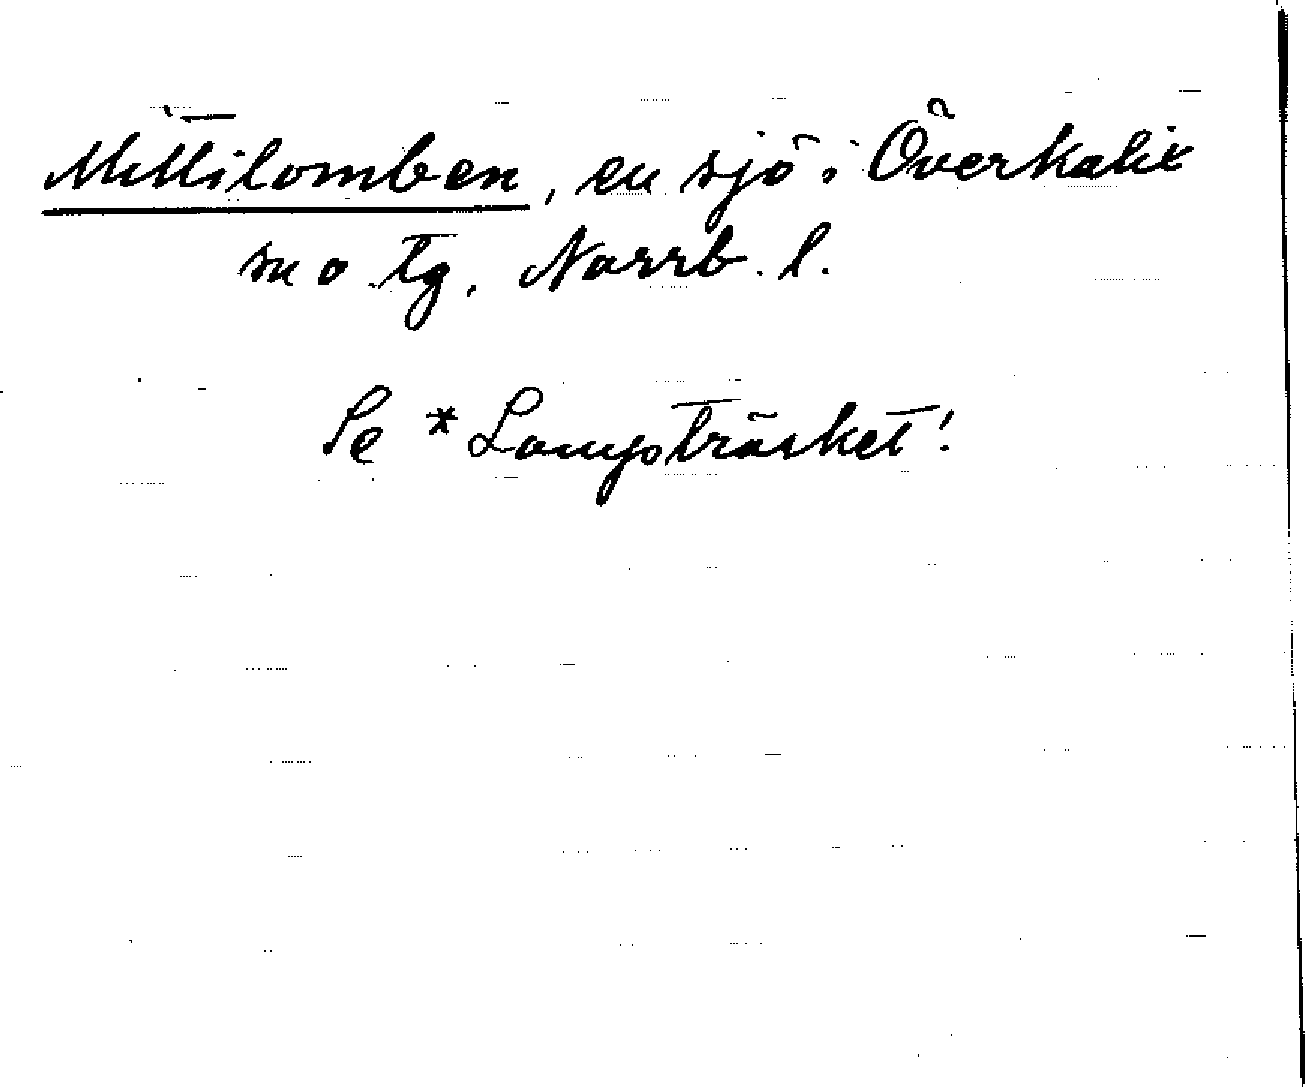 Mittilomben, en sjö i Överkalix
sn o tg, Norrb. l.
Se *Lompträsket!